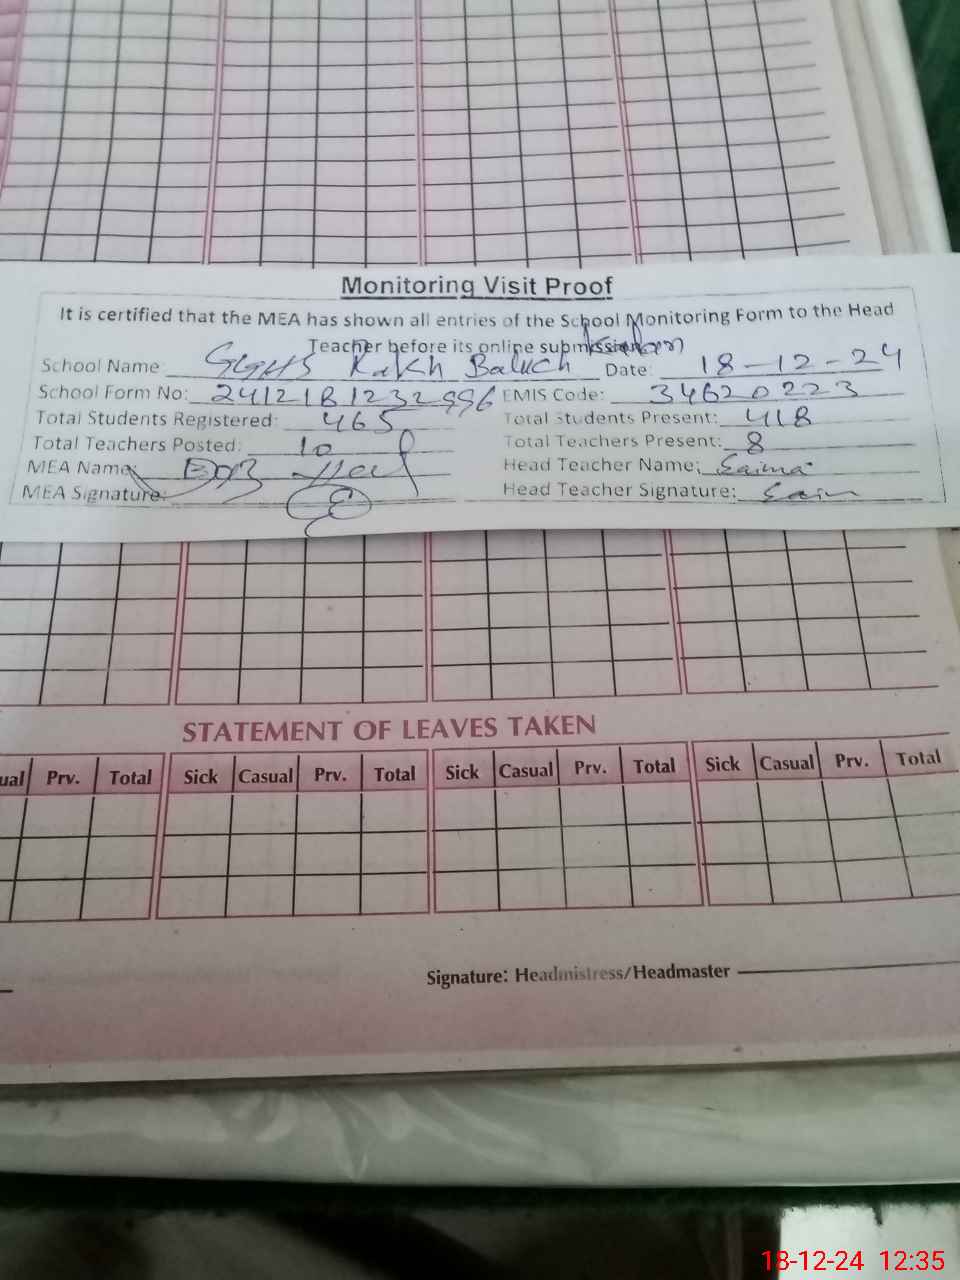 Monitoring Visit Proof
It is certified that the MEA has shown all entries of the School Monitoring Form to the Head
Teacher before its online submission
School Name: GGHS Kakh Baluch Date: 18-12-24
School Form No: EMIS Code: 34620223
Total Students Registered: 465 Total Students Present: 418
Total Teachers Posted: 10 Total Teachers Present: 8
MEA Name: Head Teacher Name: Saima
MEA Signature: Head Teacher Signature:
STATEMENT OF LEAVES TAKEN
ual Prv. Total Sick Casual Prv. Total Sick Casual Prv. Total Sick Casual Prv. Total
Signature: Headmistress/Headmaster
18-12-24 12:35